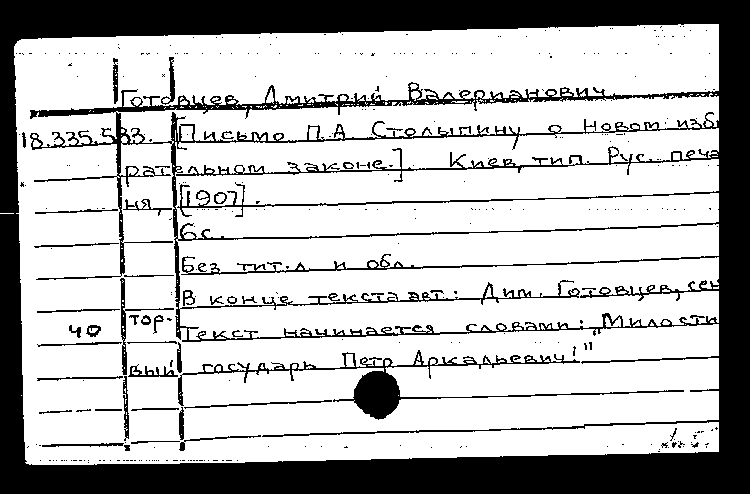 Готовцев, Дмитрий Валерианович
18.335.533. [Письмо П.А. Столыпину о новом изби
рательном законе.] Киев, тип. Рус. печа
ня, [1907].
6с.
Без тит.л и обл.
В конце текста авт.: Дим. Готовцев, сен
тор.
40 Текст начинается словами: „Милости
вый государь Петр Аркадьевич!"